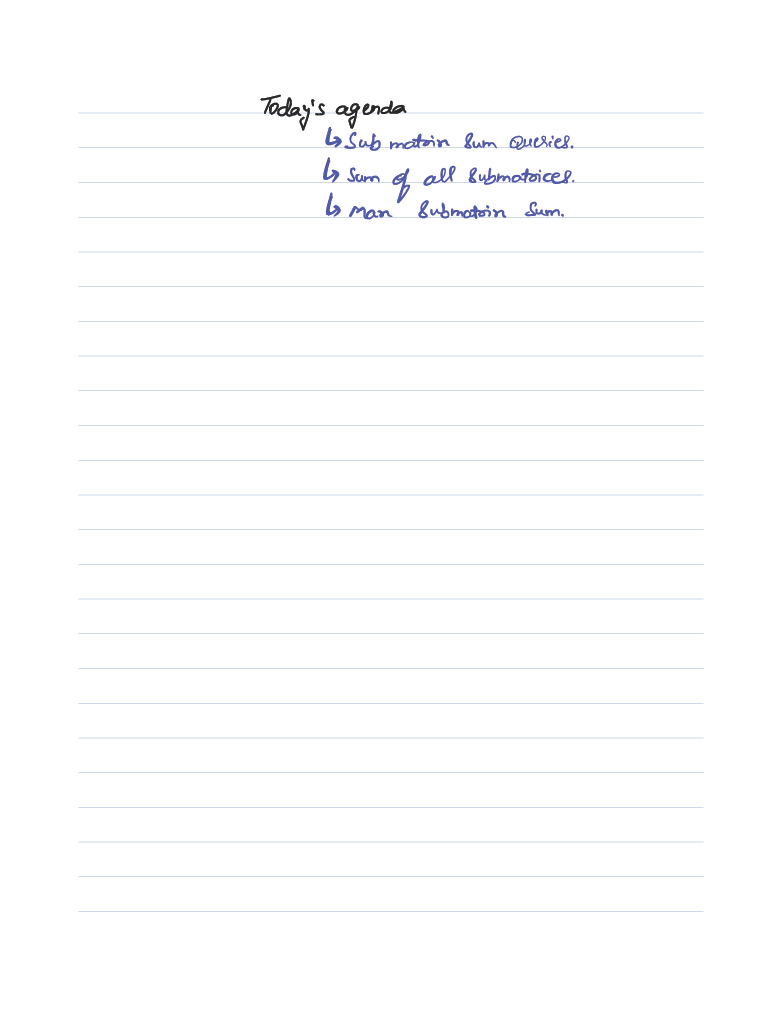 Today's agenda
↳ Sub matrix sum queries.
↳ Sum of all submatrices.
↳ Max submatrix sum.